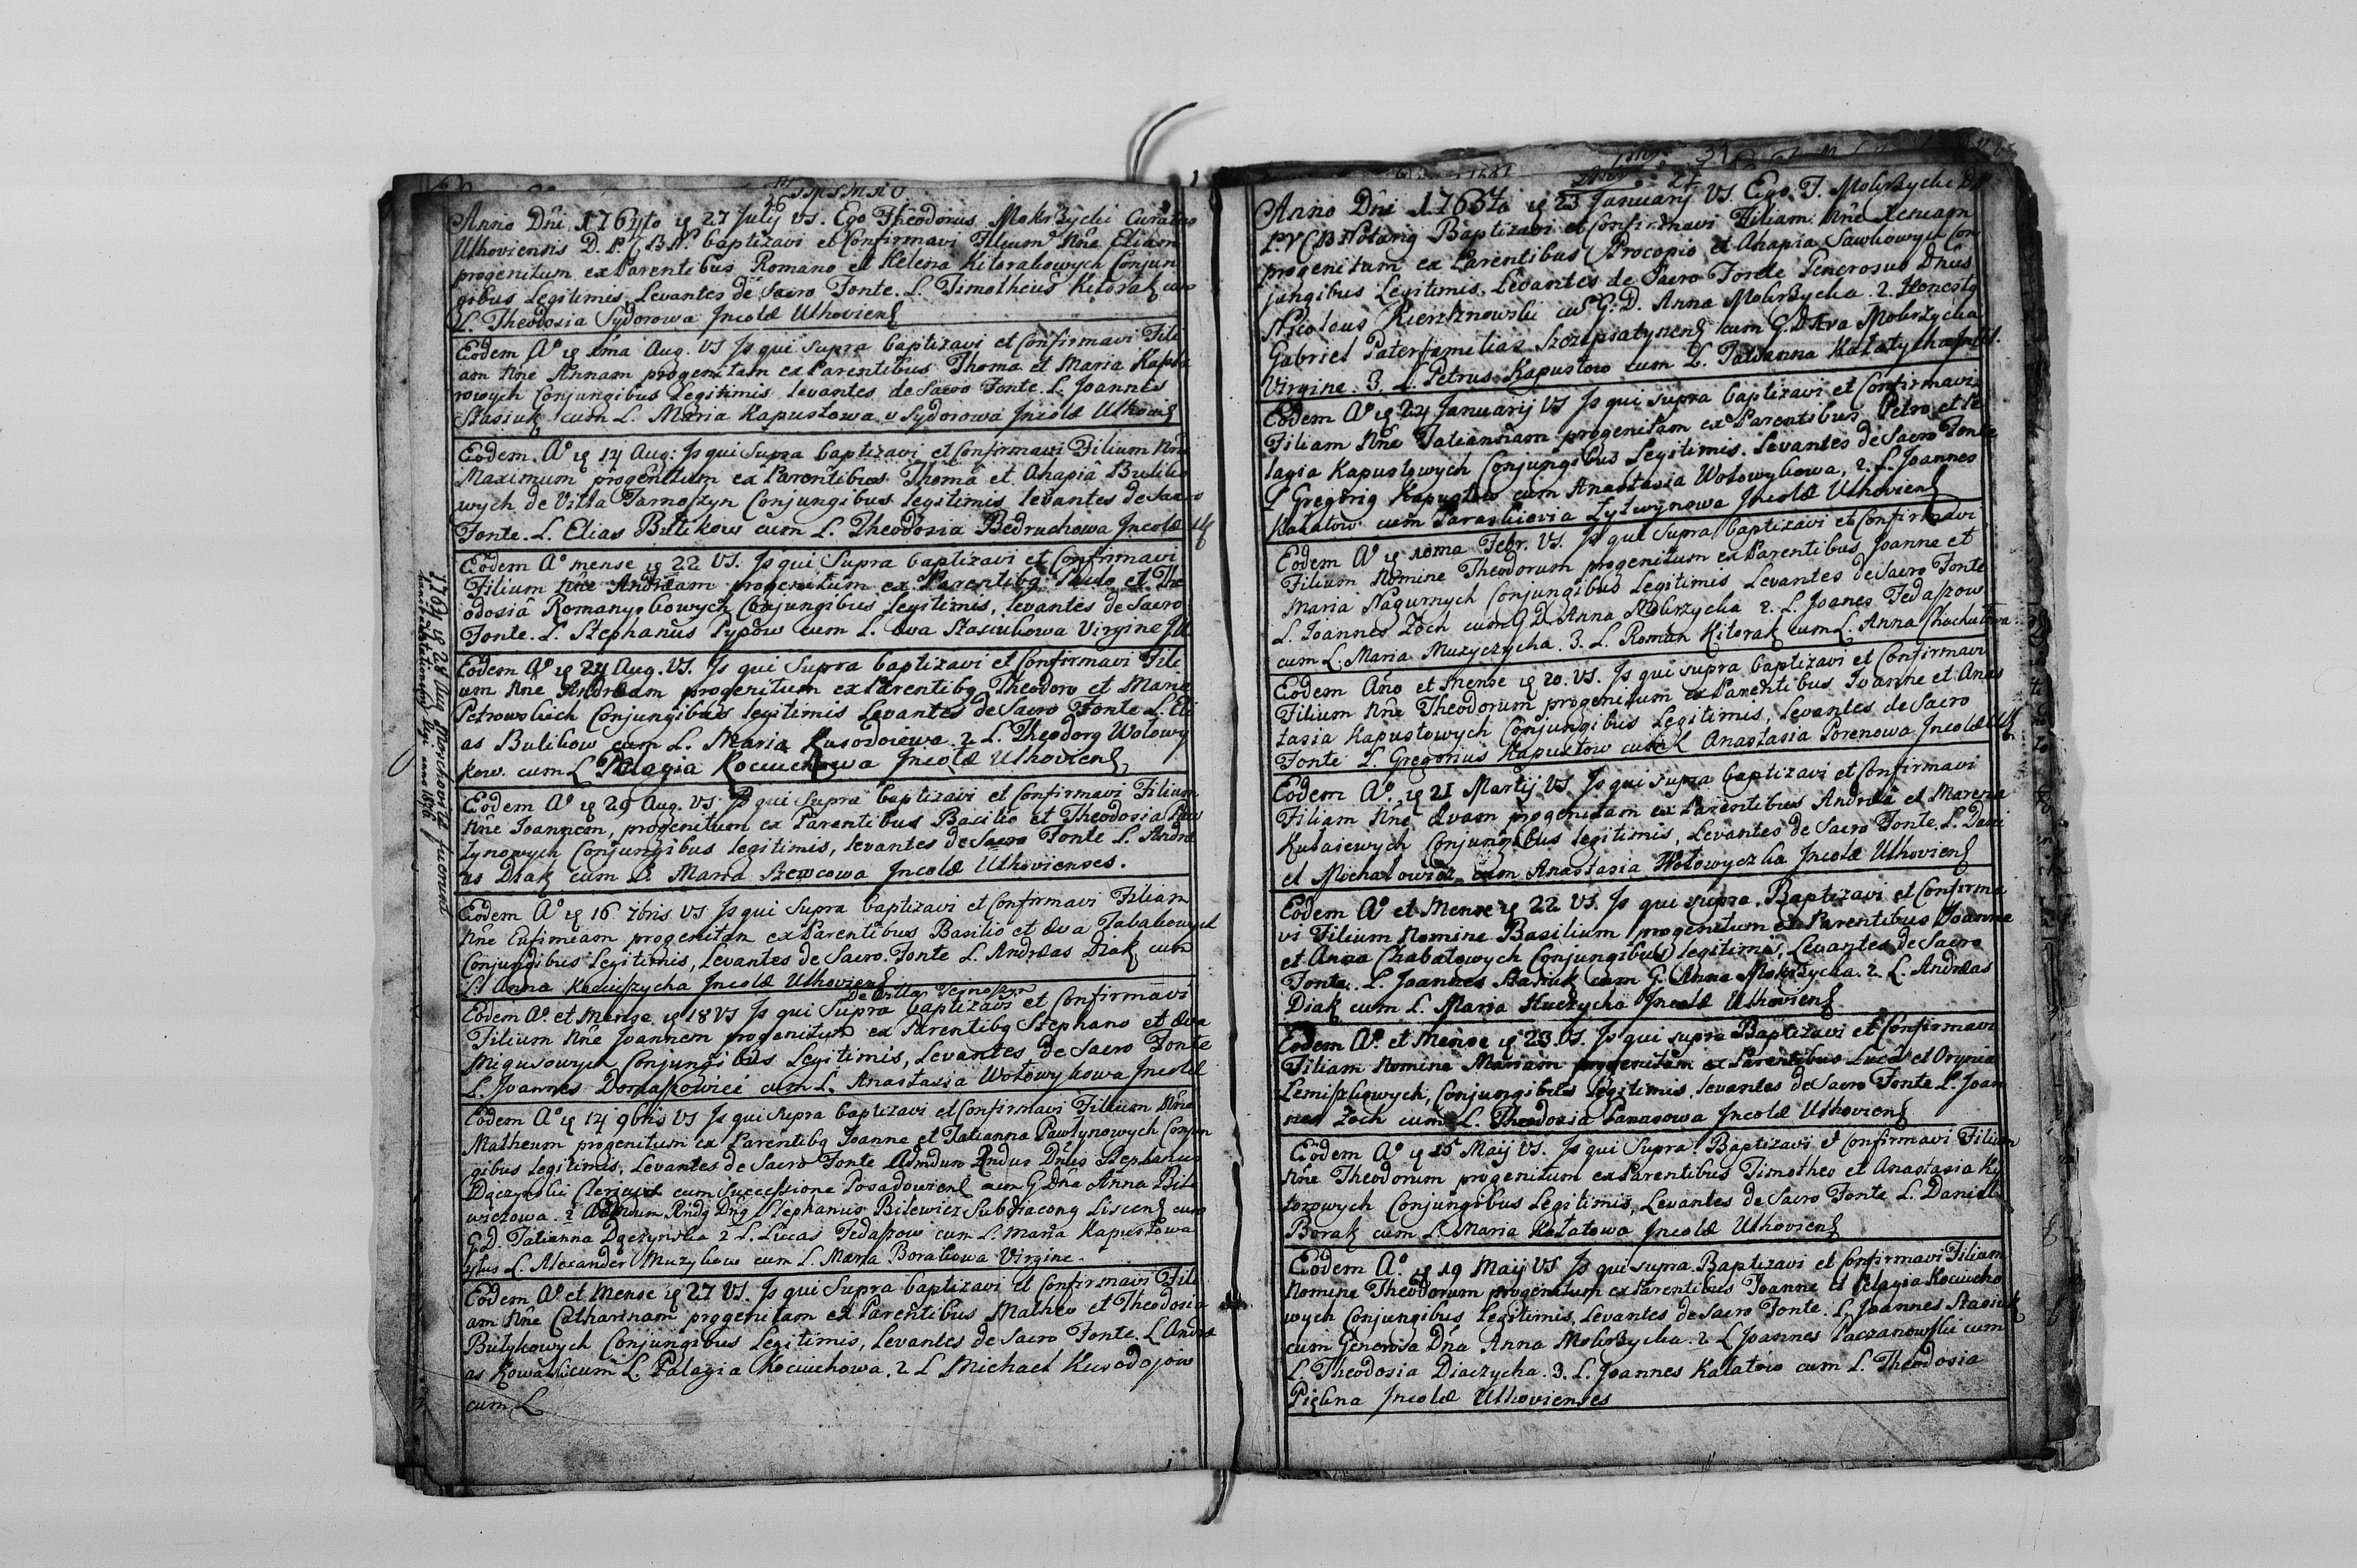 Anno Dni 1764to 27 July VS. Ego Theodorus Mokrzycki Curatus
Uhoviensis D. P. baptizavi et Confirmavi Filium Nne Eliam
progenitum ex Parentibus Romano et Helena Kitorakowych Conjun
gibus Legitimis Levantes de Sacro Fonte. L. Timotheus Kitorak cum
L. Theodosia Sydorowa Incolæ Uhovien
Eodem Ao 1ma Aug. VS Is qui Supra baptizavi et Confirmavi Fili
am Nne Annam progenitam ex Parentibus Thoma et Maria
rowych Conjungibus Legitimis levantes de Sacro Fonte. L. Joannes
Stasiuk cum L. Maria Kapustowa v Sydorowa Incolæ
Eodem Ao 14 Aug: Is qui Supra baptizavi et Confirmavi Filium Nne
Maximum progenitum ex Parentibus Thomâ et Ahapiâ Buliko
wych de Villa Tarnoszyn Conjungibus legitimis levantes de Sacro
Fonte. L. Elias Bulikow cum L. Theodosia Bedruchowa Incolæ
Eodem Ao mense 22 VS. Is qui Supra baptizavi et Confirmavi
Filium Nne Andream progenitum ex Parentibq Paulo et The
odosiâ Conjungibus Legitimis, levantes de Sacro
Fonte. L. Stephanus Pypow cum L. Eva Stasiukowa Virgine
Eodem Ao 24 Aug. VS. Is qui Supra baptizavi et Confirmavi Fili
um Nne Andræam progenitum ex Parentibq Theodoro et Maria
Petrowskich Conjungibus legitimis Levantes de Sacro Fonte L. Eli
as Bulikow cum L. Maria 2 L. Theodorq Wolowy
kow. cum L Pelagia Kociuchowa Incolæ Uhovien
Eodem Ao 29 Aug. VS Is qui Supra baptizavi et Confirmavi Filium
Nne Joannem, progenitum ex Parentibus Basilio et Theodosia Paw
lynowych Conjungibus legitimis, levantes de Sacro Fonte L. Andre
as Diak cum L. Maria Szewcowa Incolæ Uhovienses.
Eodem Ao 16 7bris VS Is qui Supra baptizavi et Confirmavi Filiam
Nne Eufimiam progenitam ex Parentibus Basilio et Eva Tabakowych
Conjungibus Legitimis, Levantes de Sacro Fonte L. Andræas Diak cum
L. Anna Incolæ Uhovien
De Villa
Eodem Ao. et Mense 18 VS Is qui Supra baptizavi et Confirmavi
Filium Nne Joannem progenitum ex Parentibq Stephano et Eva
Migusowych Conjungibus Legitimis, Levantes de Sacro Fonte
L. Joannes cum L. Anastasia Wolowykowa Incolæ
Eodem Ao 14 9bris VS Is qui Supra baptizavi et Confirmavi Filium Nne
Matheum progenitum ex Parentibq Joanne et Tatianna Pawlynowych Conjun
gibus legitimis, Levantes de Sacro Fonte Admdum Rndus Dnus Stephanus
Clericus cum Successione cum G Dna Anna Bile
wiczowa. 2 Admdum Rndq Dnq Stephanus Bilewicz Subdiaconq cum
G.D. Tatianna 2 L. Lucas Fedaszow cum L. Maria Kapustowa
L. Alexander Muzykow cum L. Maria Borakowa Virgine
Eodem Ao et Mense 27 VS. Is qui Supra baptizavi et Confirmavi Fili
am Nne Catharinam progenitam ex Parentibus Matheo et Theodosia
Bulykowych Conjungibus Legitimis, Levantes de Sacro Fonte. L. Andre
as cum L. Palagia Kociuchowa. 2 L Michael
cum L
1764 28 July
Anno Dni 1765to 23 Januarij VS. Ego T. Mokrzycki
Baptizavi et Confirmavi Filiam Nne Xeniam
progenitam ex Parentibus Procopio et Ahapia Sawkowych Con
jungibus Legitimis, Levantes de Sacro Fonte Generosus Dnus
Nicolaus cum G. D. Anna Mokrzycka. 2. Honesto
Gabriel Paterfamilias cum G.D Eva Mokrzycka
Virgine. 3. L. Petrus Kapustow cum L. Tatianna
Eodem Ao 24 Januarij VS Is qui supra baptizavi et Confirmavi
Filiam Nne Tatiannam progenitam ex Parentibus Petro et Pe
lagia Kapustowych Conjungibus Legitimis. Levantes de Sacro Fonte
Gregoriq Kapustow cum Anastasia Wolowykowa, 2. L. Joannes
Kalatow cum Paraskievia Incolæ Uhovien
Eodem Ao 10ma Febr. VS. Is qui Supra baptizavi et Confirmavi
Filium Nomine Theodorum progenitum ex Parentibus Joanne et
Maria Nagurnych Conjungibus Legitimis Levantes de Sacro Fonte
L. Joannes Zoch cum G D Anna Mokrzycka 2. L. Joanes Fedaszow
cum L. Maria Muzyczycha. 3. L. Roman Kitorak cum L. Anna
Eodem Año et Mense 20. VS. Is qui supra baptizavi et Confirmavi
Filium Nne Theodorum progenitum ex Parentibus Ioanne et Anas
tasia Kapustowych Conjungibus Legitimis, Levantes de Sacro
Fonte L. Gregorius Kapustow cum L Anastasia Porenowa Incolæ
Eodem Ao 21 Martij VS Is qui supra baptizavi et Confirmavi
Filiam Nne Evam progenitam ex Parentibus Andreâ et Marena
Conjungibus legitimis, Levantes de Sacro Fonte. L. Dani
el Michalowicz cum Anastasia Wolowyczka Incolæ Uhovien
Eodem Ao et Mense 22 VS. Is qui supra. Baptizavi et Confirma
vi Filium Nomine Basilium progenitum ex Parentibus Joanne
et Anna Chabalowych Conjungibus legitimis, Levantes de Sacro
Fonte. L. Joannes Stasiuk cum G. Anna Mokrzycka. 2 L. Andræas
Diak cum L. Maria Incolæ Uhovien
Eodem Ao. et Mense 23 VS. Is qui supra Baptizavi et Confirmavi
Filiam Nomine Mariam progenitam ex Parentibus Lucâ et Orynia
Lemiszkowych, Conjungibus Legitimis, levantes de Sacro Fonte L. Joan
nes Zoch cum L. Theodosia Panasowa Incolæ Uhovien
Eodem Ao 15 Maij VS. Is qui Supra Baptizavi et Confirmavi Filium
Nne Theodorum progenitum ex Parentibus Timotheo et Anastasia Ky
torowych Conjungibus Legitimis, Levantes de Sacro Fonte L. Daniel
Borak cum L. Maria Kalatowa Incolæ Uhovien
Eodem Ao. 19 Maij VS Is qui supra Baptizavi et Confirmavi Filium
Nomine Theodorum progenitum ex Parentibus Joanne et Pelagia Kociucho
wych Conjungibus Legitimis, Levantes de Sacro Fonte. L. Joannes Stasiuk
cum Generosa Dna Anna Mokrzycka. 2 L Joannes Paczanowski cum
L. Theodosia Diaczycha. 3. L. Joannes Kalatow cum L. Theodosia
Incolæ Uhovienses